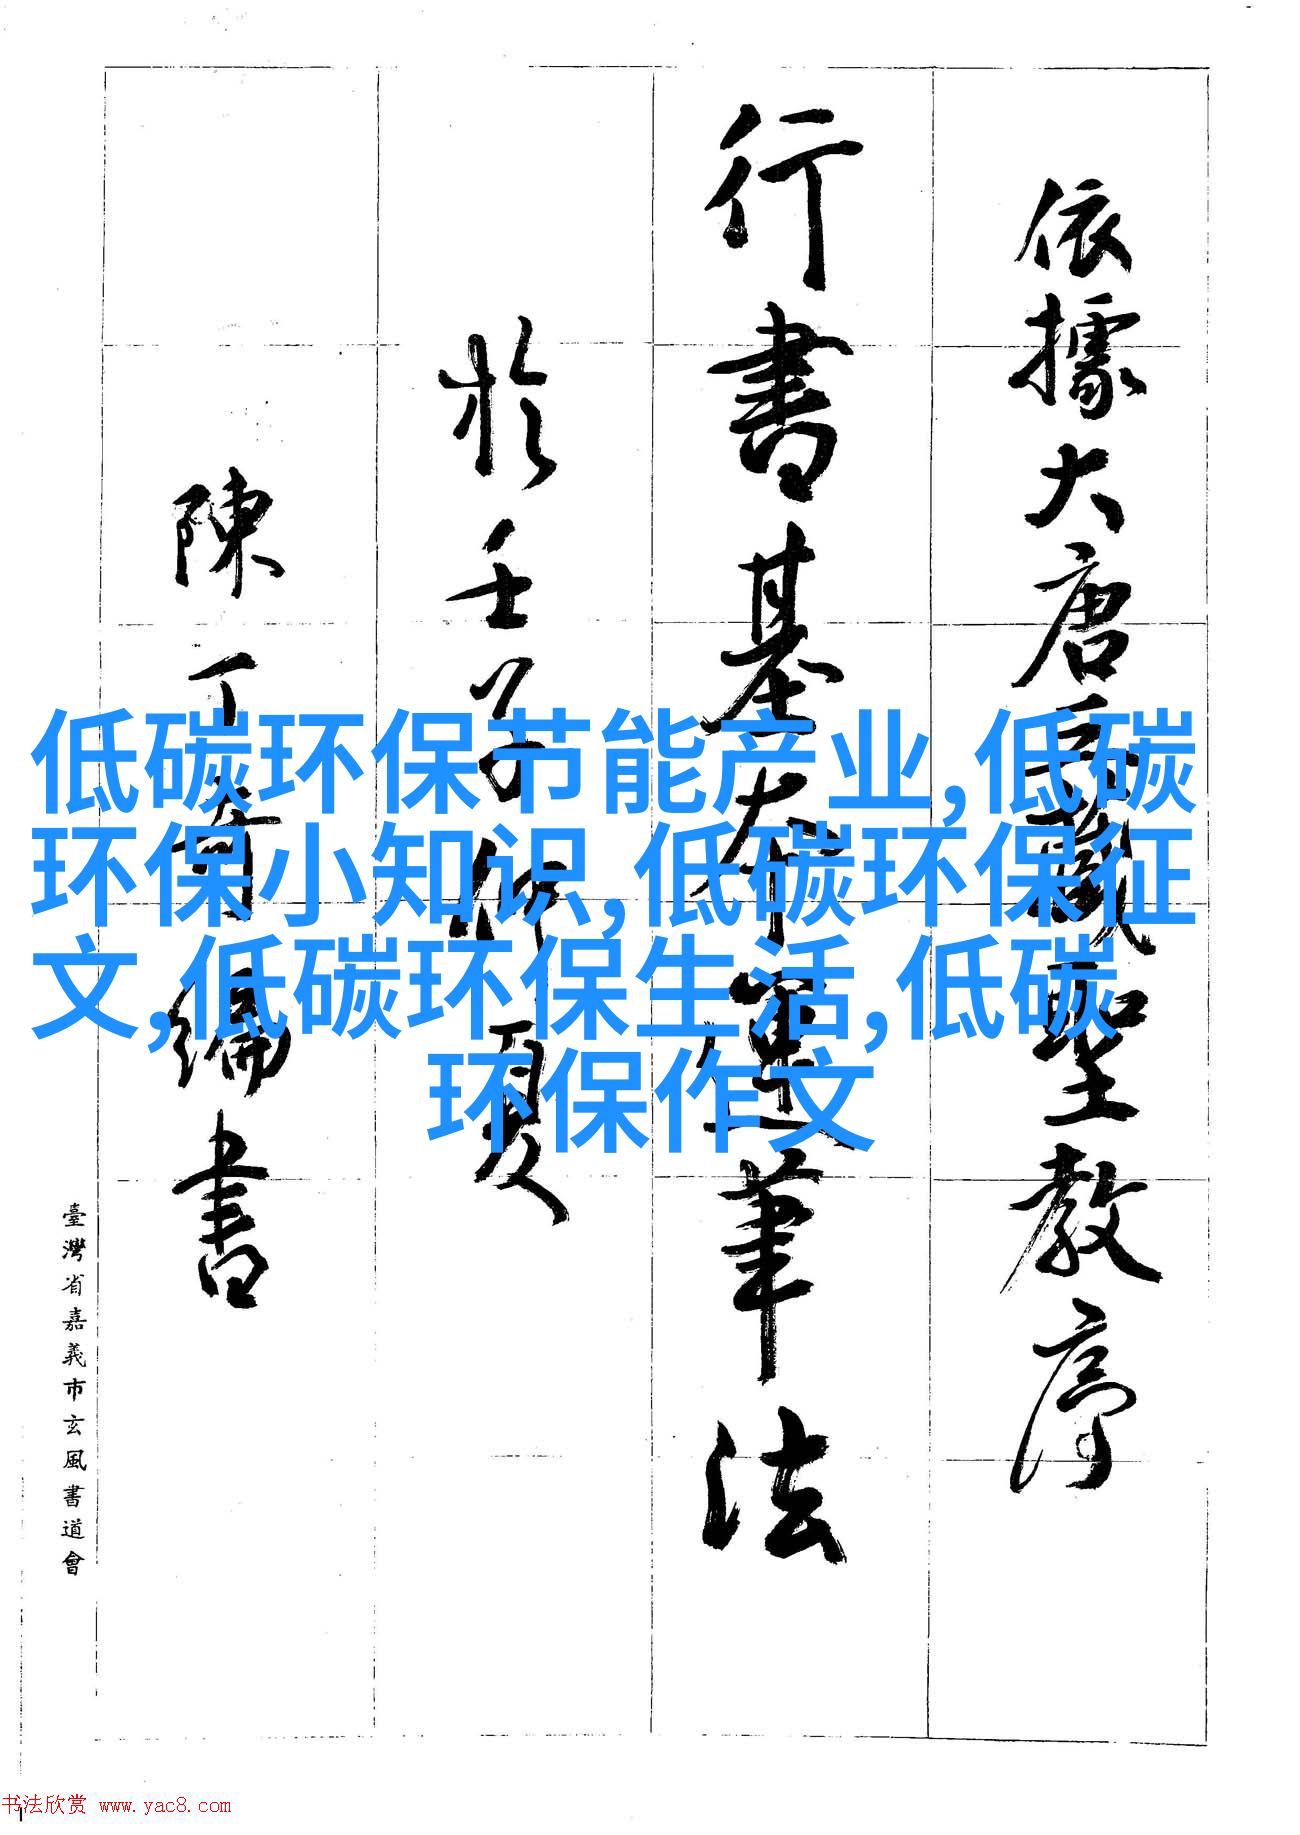 依據大唐三藏聖教序
行書基本運筆法
於壬子仲夏
陳丁奇編書
臺灣省嘉義市玄風書道會
低碳环保节能产业,低碳
环保小知识,低碳环保征
文,低碳环保生活,低碳
环保作文
书法欣赏 www.yac8.com
1